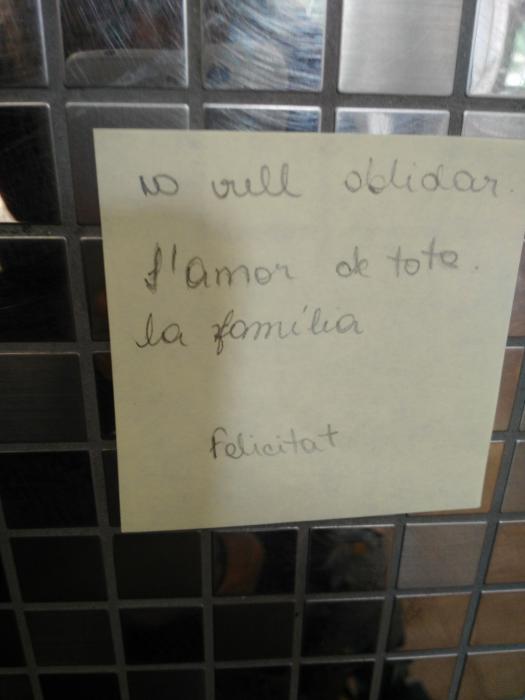 no vull oblidar.
l'amor de tota.
la família
Felicitat